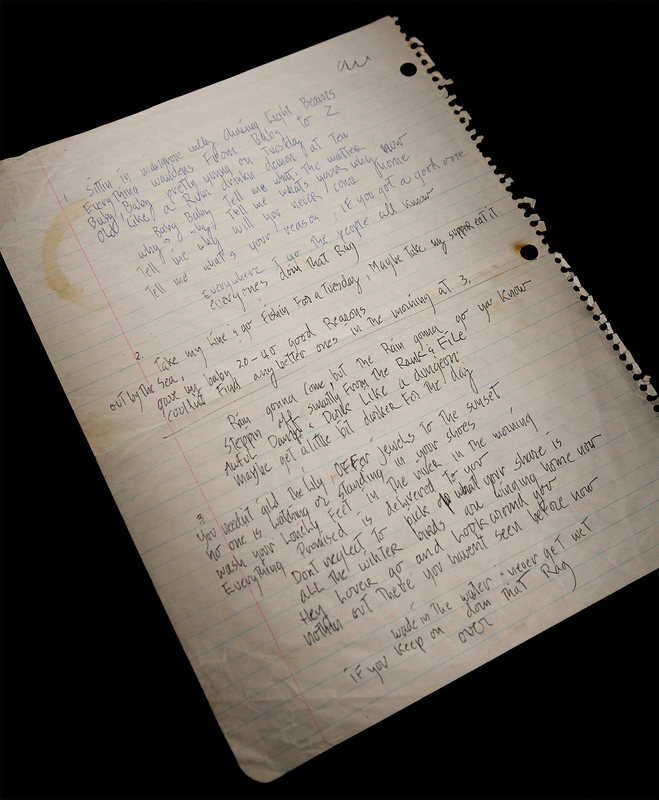 1. Sittin in mangrove valley chasing Light Beams
Everything wanders From Baby to Z
Baby, Baby pretty young on Tuesday
Old Like a Rum drinkin demon at Tea
Baby Baby Tell me what's the matter
why, why Tell me what's yours why now
Tell me why will you never come home
Tell me what's your reason, if you got a good one
Everywhere I go The people all know
everyones doin that Rag
2. Take my Line & go Fishin For a Tuesday, Maybe Take my supper eat it
out by the sea,
gave my baby 20-40 good Reasons
couldnt Find any better ones in the morning at 3.
Rain gonna come, but the Rain gonna go ya know
Steppin off smartly From the Rank & File
Awful Damp & Darke Like a dungeon
maybe get a little bit darker For the day
3. You needn't gild the lily, OFFer jewels to the sunset
no one is watching or standing in your shoes
wash your Lonely Feet in The river in the morning
Everything Promised is delivered to you
Dont neglect to pick up what your share is
all The winter birds are winging home now
Hey Lover go and look around you
nothin out there you haven't seen before now
wade in the water & never get wet
if you keep on doin that Rag
over